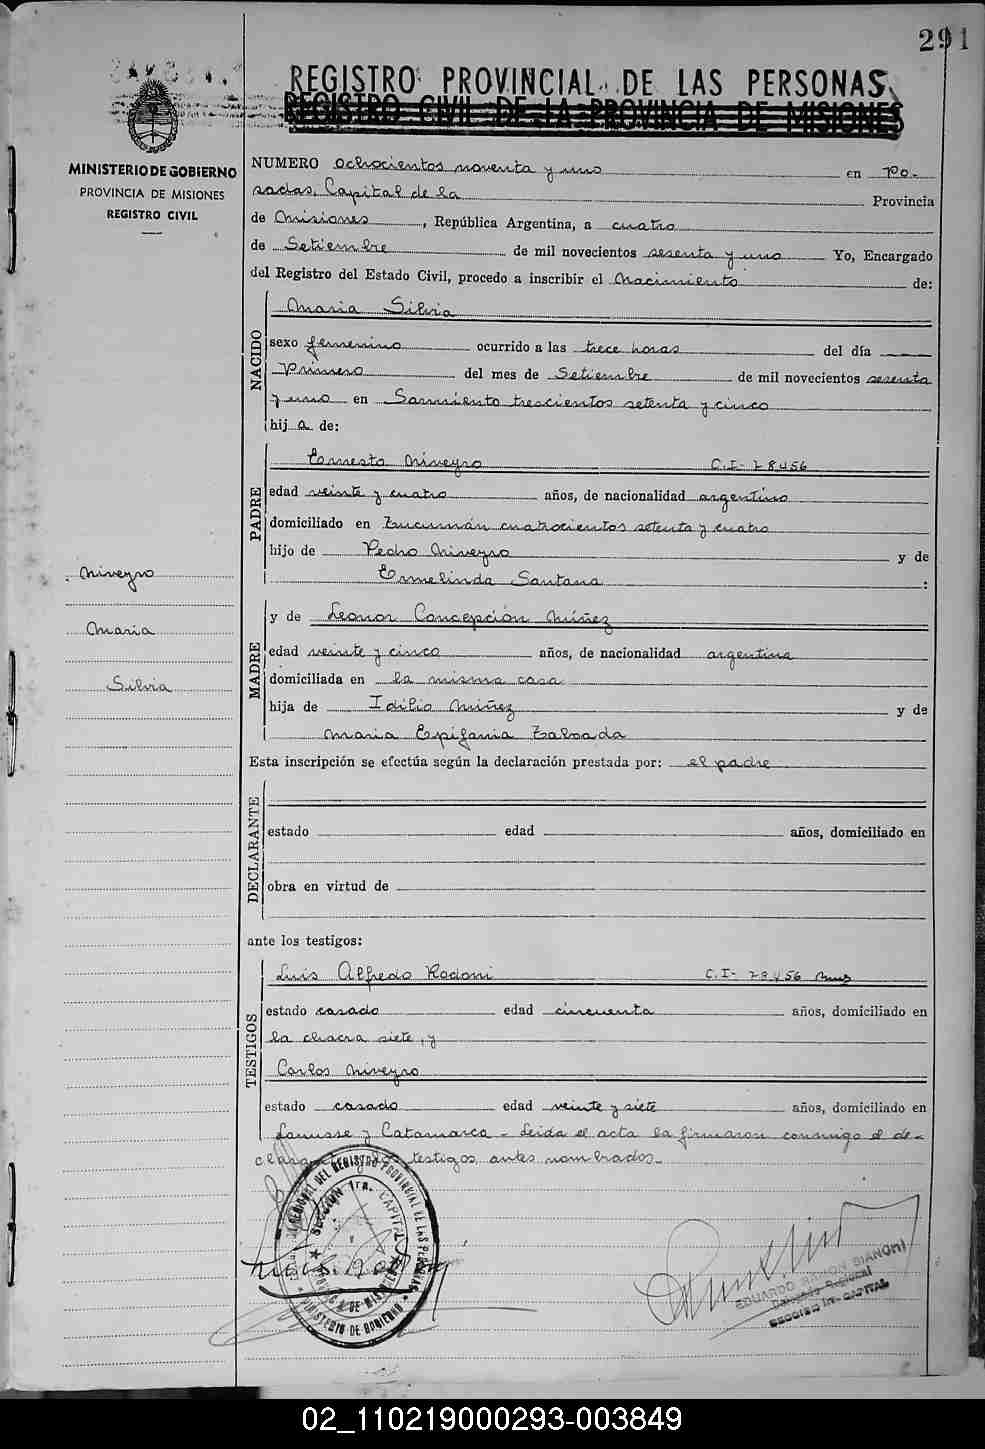 291
REGISTRO PROVINCIAL DE LAS PERSONAS
REGISTRO CIVIL DE LA PROVINCIA DE MISIONES
MINISTERIO DE GOBIERNO
PROVINCIA DE MISIONES
REGISTRO CIVIL
NUMERO ochocientos noventa y uno en Po-
sadas, Capital de la Provincia
de Misiones, República Argentina, a cuatro
de Setiembre de mil novecientos sesenta y uno Yo, Encargado
del Registro del Estado Civil, procedo a inscribir el Nacimiento de:
NACIDO
Maria Silvia
sexo femenino ocurrido a las trece horas del día
Primero del mes de Setiembre de mil novecientos sesenta
y uno en Sarmiento trescientos setenta y cinco
hija de:
PADRE
Ernesto Niveyro C.I- 78456
edad veinte y cuatro años, de nacionalidad argentino
domiciliado en Tucumán cuatrocientos setenta y cuatro
hijo de Pedro Niveyro y de
Ermelinda Santana :
MADRE
y de Leonor Concepción Núñez
edad veinte y cinco años, de nacionalidad argentina
domiciliada en la misma casa
hija de Idilio Núñez y de
Maria Epifania Taboada
Niveyro
Maria
Silvia
Esta inscripción se efectúa según la declaración prestada por: el padre
DECLARANTE
estado edad años, domiciliado en
obra en virtud de
ante los testigos:
TESTIGOS
Luis Alfredo Rodoni C.I- 78456 Mnes
estado casado edad cincuenta años, domiciliado en
la chacra siete, y
Carlos Niveyro
estado casado edad veinte y siete años, domiciliado en
Lanusse y Catamarca - Leida el acta la firmaron conmigo el de-
testigos antes nombrados-
REGIONAL DEL REGISTRO PROVINCIAL DE LAS PERSONAS
SECCION 1ra. CAPITAL
PROVINCIA DE MISIONES
MINISTERIO DE GOBIERNO
EDUARDO RAMON BIANCHI
Delegado Regional
SECCION 1ra. CAPITAL
02_110219000293-003849